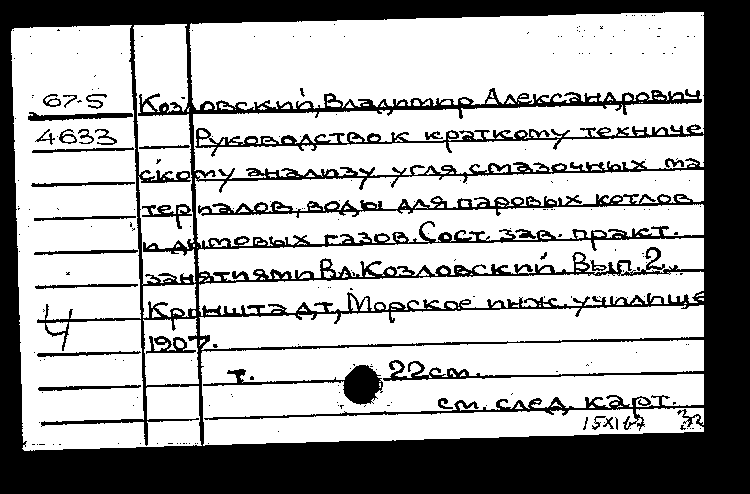 67-5 Козловский, Владимир Александрович
4633 Руководство к краткому техниче
скому анализу угля, смазочных ма
териалов, воды для паровых котлов
и дымовых газов. Сост. зав. практ.
занятиями Вл. Козловский. Вып. 2.
Кронштадт, Морское инж. училище
Ч 1907.
т. 22 см.
см. след. карт.
15 XI 67